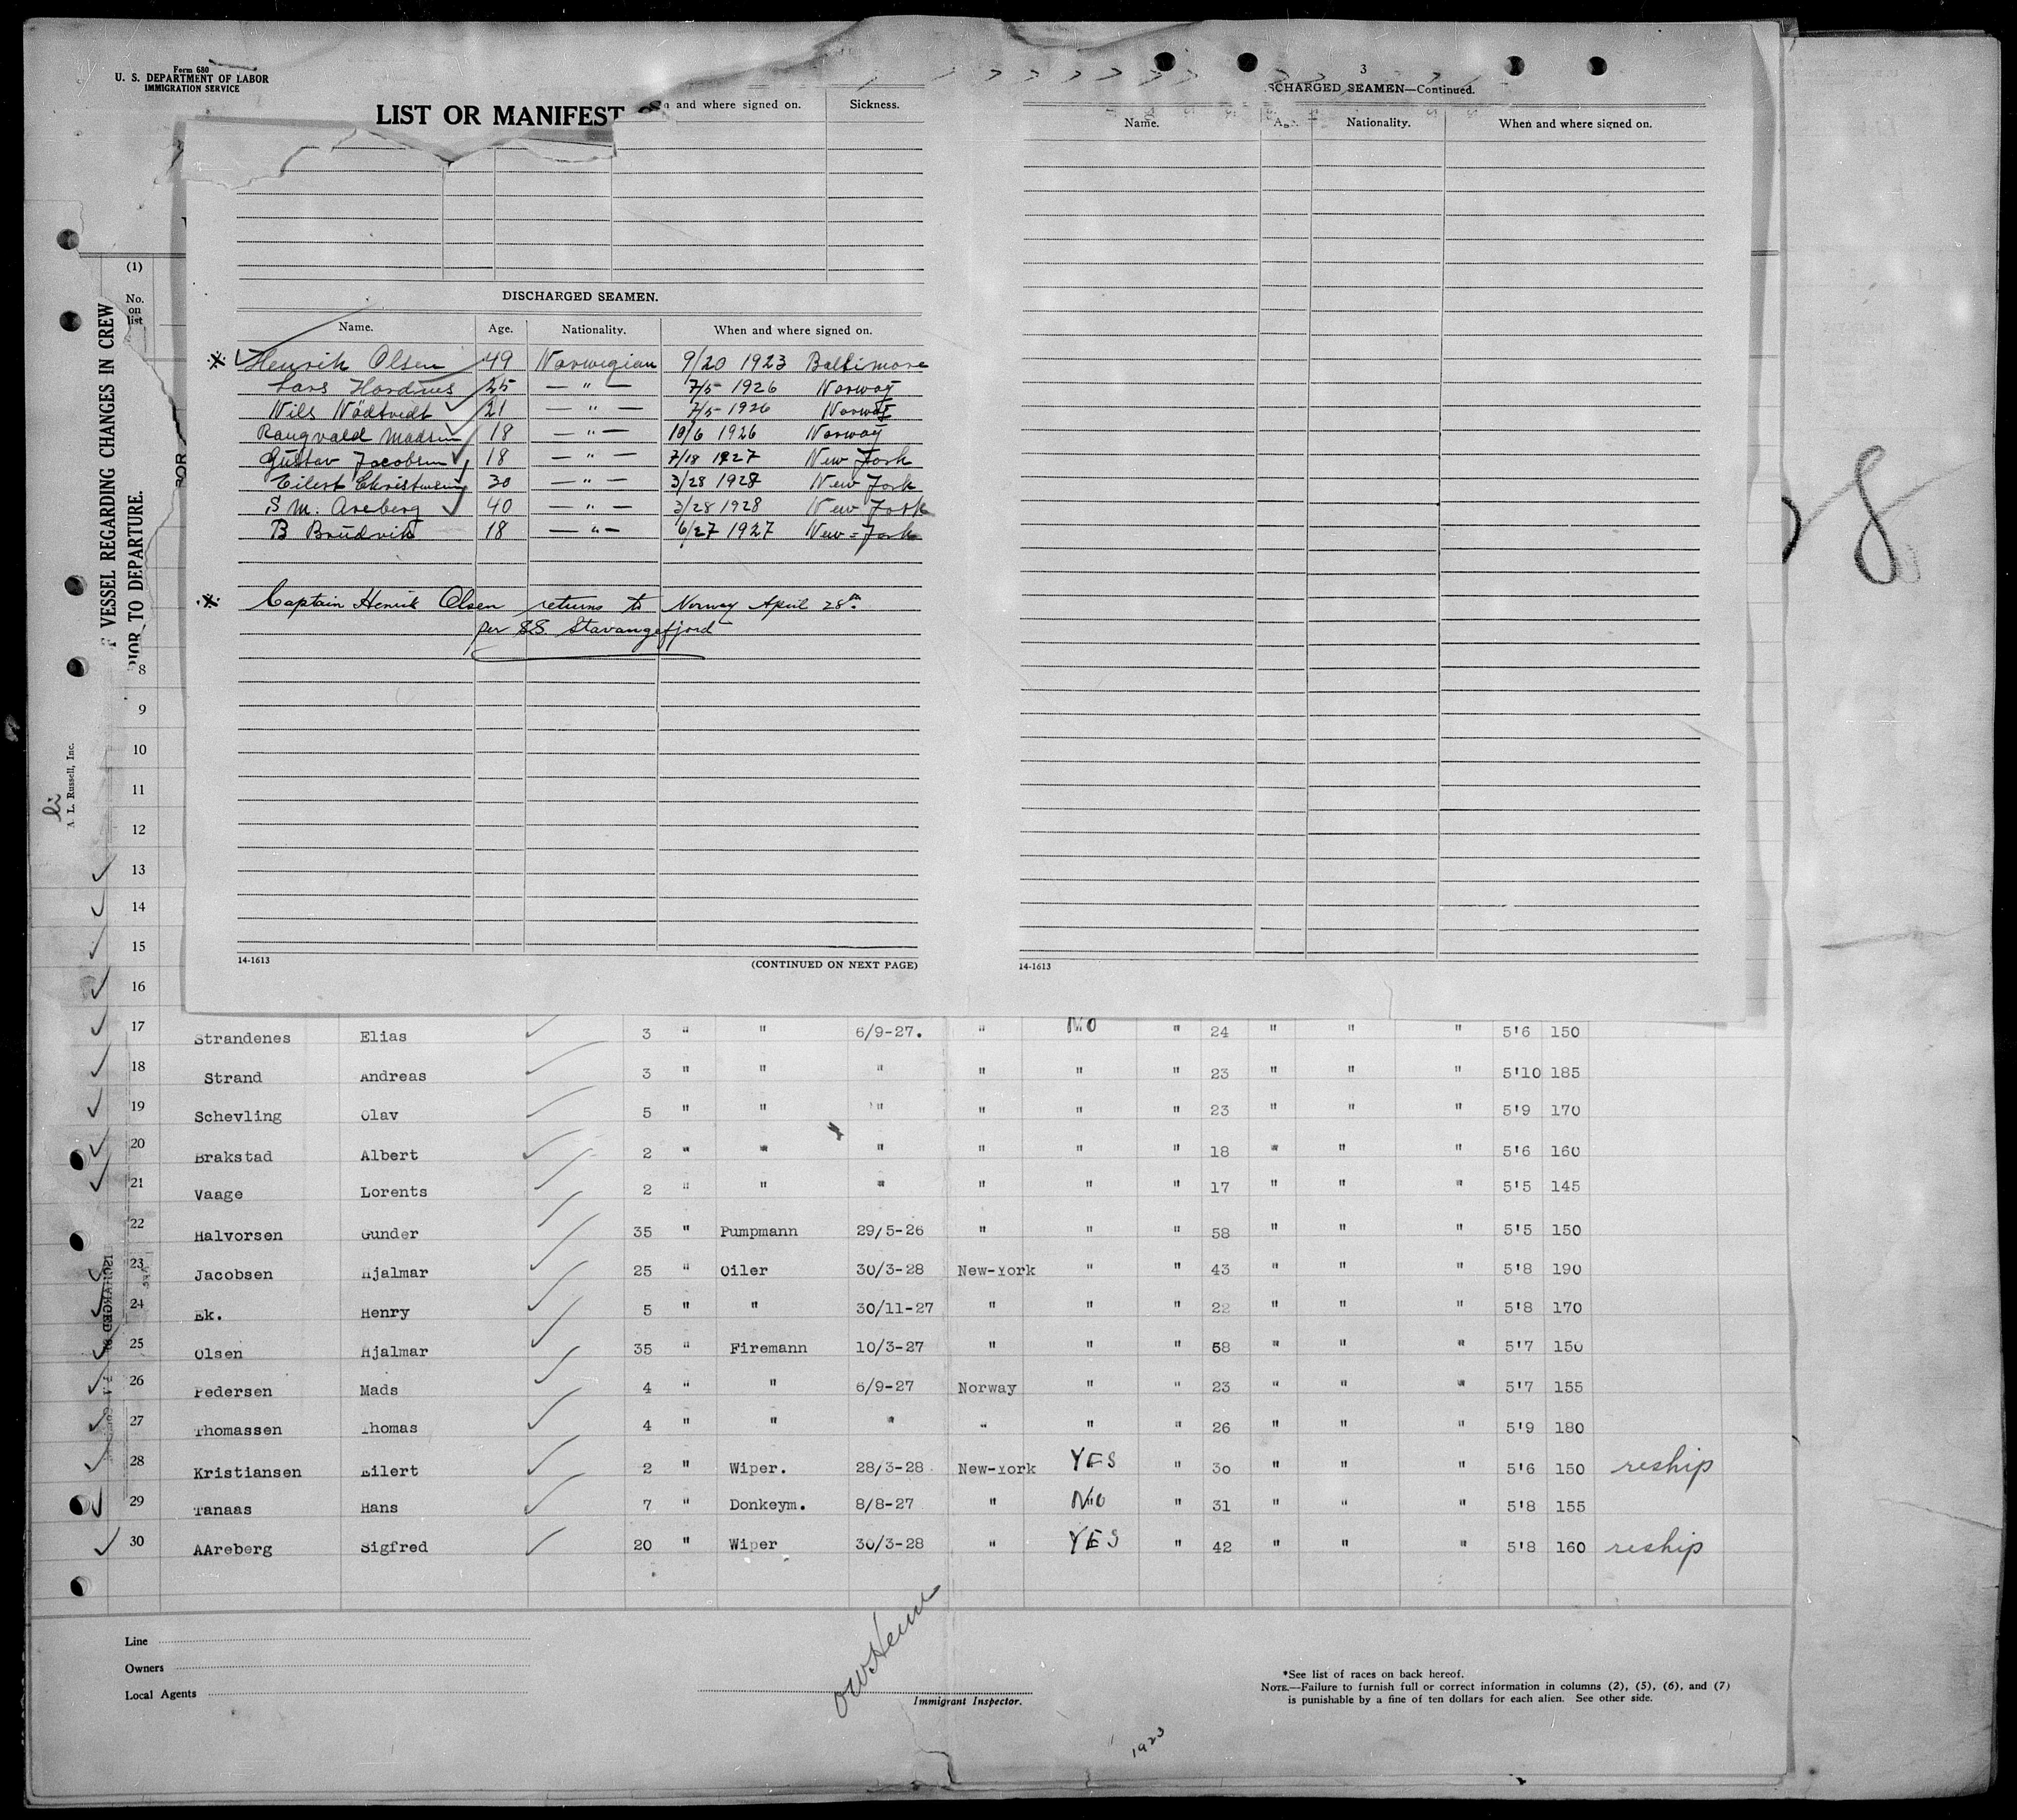 Form 680
U. S. DEPARTMENT OF LABOR
IMMIGRATION SERVICE
LIST OR MANIFEST
and where signed on. Sickness.
DISCHARGED SEAMEN.
Name. Age. Nationality. When and where signed on.
Henrik Olsen 49 Norwegian 9/20 1923 Baltimore
Lars 25 — " — 7/5 1926 Norway
Nils Nödtvedt 21 — " — 7/5 1926 Norway
Rangvald Madsen 18 — " — 10/6 1926 Norway
Gustav Jacobsen 18 — " — 7/18 1927 New York
Eilert 30 — " — 3/28 1928 New York
S M. Areberg 40 — " — 3/28 1928 New York
B Brudvik 18 — " — 6/27 1927 New=York
Captain Henrik Olsen returns to Norway April 28th
per SS. Stavangefjord
14-1613 (CONTINUED ON NEXT PAGE)
3
SCHARGED SEAMEN—Continued.
Name. Age. Nationality. When and where signed on.
14-1613
8
VESSEL REGARDING CHANGES IN CREW
IOR TO DEPARTURE.
A. L. Russell, Inc.
li
(1)
No.
on
list
8
9
10
11
12
13
14
15
16
17 Strandenes Elias 3 " " 6/9-27. " NO " 24 " " " 5'6 150
18 Strand Andreas 3 " " " " " " 23 " " " 5'10 185
19 Schevling Olav 5 " " " " " " 23 " " " 5'9 170
20 Brakstad Albert 2 " " " " " " 18 " " " 5'6 160
21 Vaage Lorents 2 " " " " " " 17 " " " 5'5 145
22 Halvorsen Gunder 35 " Pumpmann 29/5-26 " " " 58 " " " 5'5 150
23 Jacobsen Hjalmar 25 " Oiler 30/3-28 New-York " " 43 " " " 5'8 190
24 Ek. Henry 5 " " 30/11-27 " " " 22 " " " 5'8 170
25 Olsen Hjalmar 35 " Firemann 10/3-27 " " " 58 " " " 5'7 150
26 Pedersen Mads 4 " " 6/9-27 Norway " " 23 " " " 5'7 155
27 Thomassen Thomas 4 " " " " " " 26 " " " 5'9 180
28 Kristiansen Eilert 2 " Wiper. 28/3-28 New-York YES " 30 " " " 5'6 150 reship
29 Tanaas Hans 7 " Donkeym. 8/8-27 " NO " 31 " " " 5'8 155
30 AAreberg Sigfred 20 " Wiper 30/3-28 " YES " 42 " " " 5'8 160 reship
Line
Owners
Local Agents
Immigrant Inspector.
*See list of races on back hereof.
NOTE.—Failure to furnish full or correct information in columns (2), (5), (6), and (7)
is punishable by a fine of ten dollars for each alien. See other side.
1923